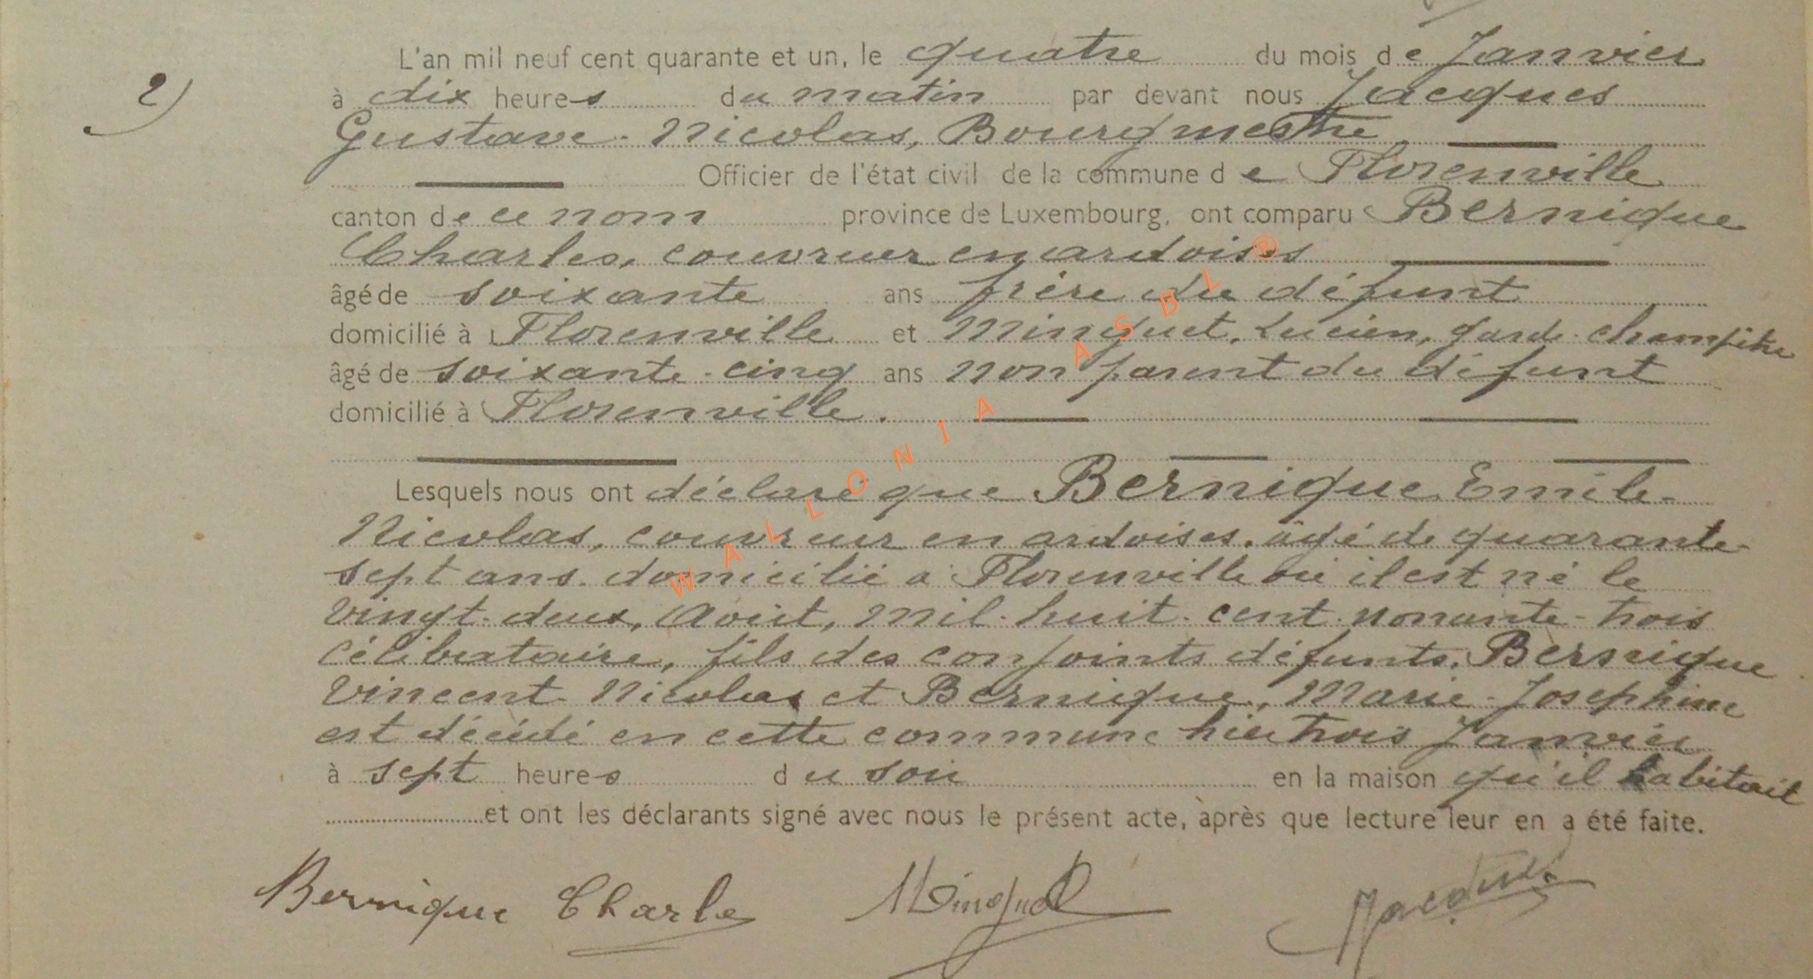 L'an mil neuf cent quarante et un, le quatre du mois de Janvier
2) à dix heures du matin par devant nous Jacques
Gustave-Nicolas, Bourgmestre
Officier de l'état civil de la commune de Florenville
canton de ce nom province de Luxembourg, ont comparu Bernique
Charles, couvreur en ardoises
âgé de soixante ans frère du défunt
domicilié à Florenville et Minquet, Lucien, garde-champêtre
âgé de soixante-cinq ans non parent du défunt
domicilié à Florenville.
Lesquels nous ont déclaré que Bernique Emile-
Nicolas, couvreur en ardoises, âgé de quarante-
sept ans domicilié à Florenville où il est né le
vingt-deux, Août, mil-huit-cent-nonante-trois
célibataire, fils des conjoints défunts, Bernique
Vincent Nicolas et Bernique, Marie-Josephine
est décédé en cette commune hier trois Janvier
à sept heures du soir en la maison qu'il habitait
et ont les déclarants signé avec nous le présent acte, après que lecture leur en a été faite.
Bernique Charles Minquet Jacques
WALLONIA ASBL ®